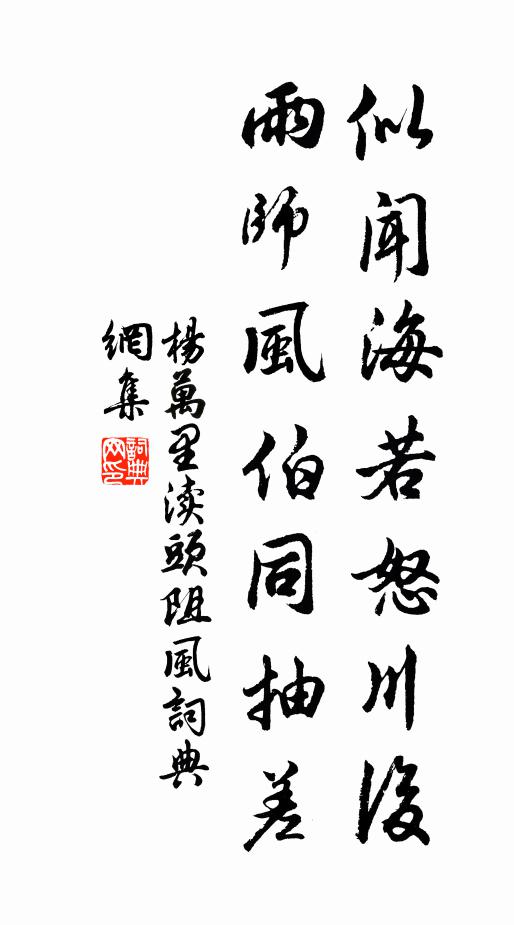 似聞海若怒川後
雨師風伯同抽差
楊萬里渎頭阻風詞典
網集
詞典網印